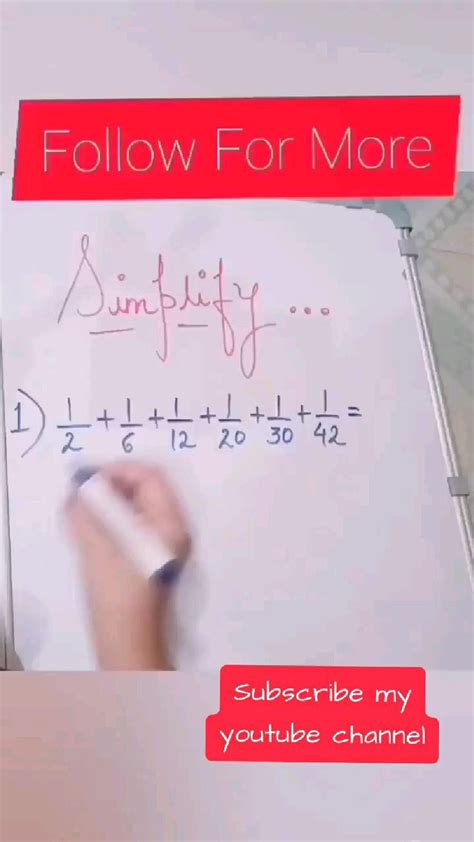 Follow For More
Simplify ...
1) 1/2 + 1/6 + 1/12 + 1/20 + 1/30 + 1/42 =
Subscribe my
youtube channel